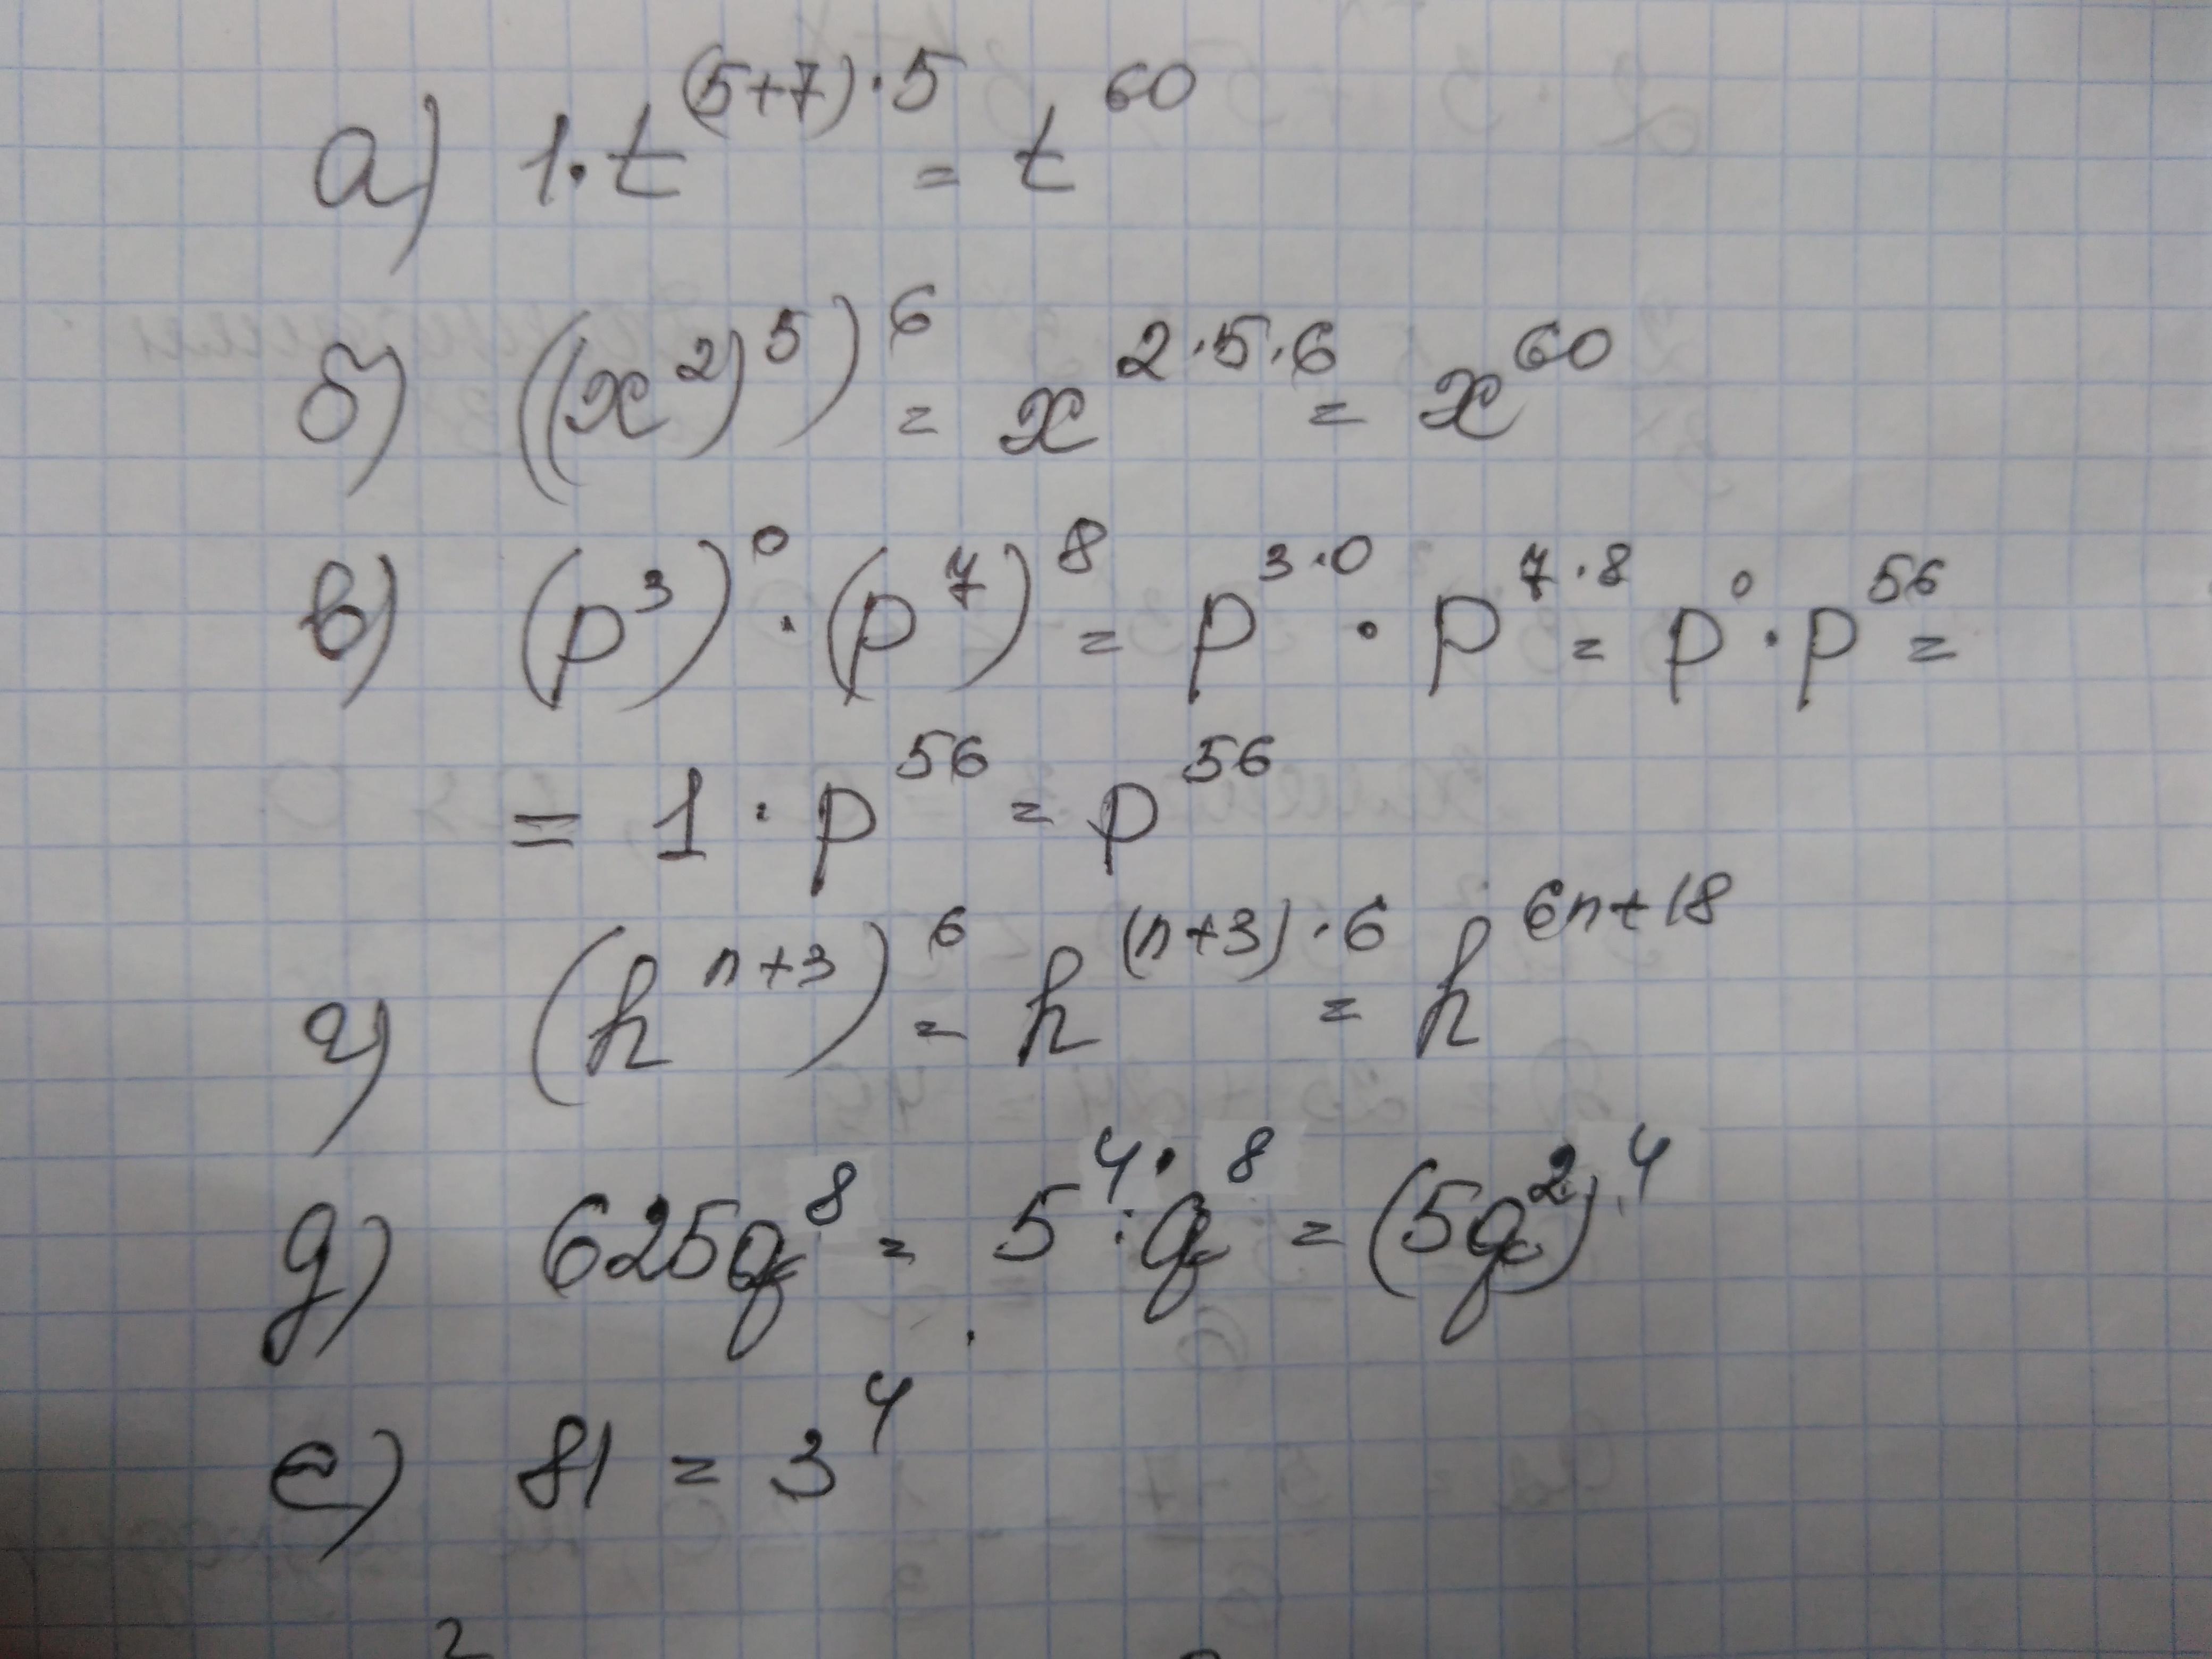 а) 1·t^(5+7)·5 = t^60
б) ((x^2)^5)^6 = x^2·5·6 = x^60
в) (p^3)^0 · (p^7)^8 = p^3·0 · p^7·8 = p^0 · p^56 =
= 1 · p^56 = p^56
г) (h^n+3)^6 = h^(n+3)·6 = h^6n+18
д) 625q^8 = 5^4· : q^8 = (5q^2)^4
е) 81 = 3^4
2